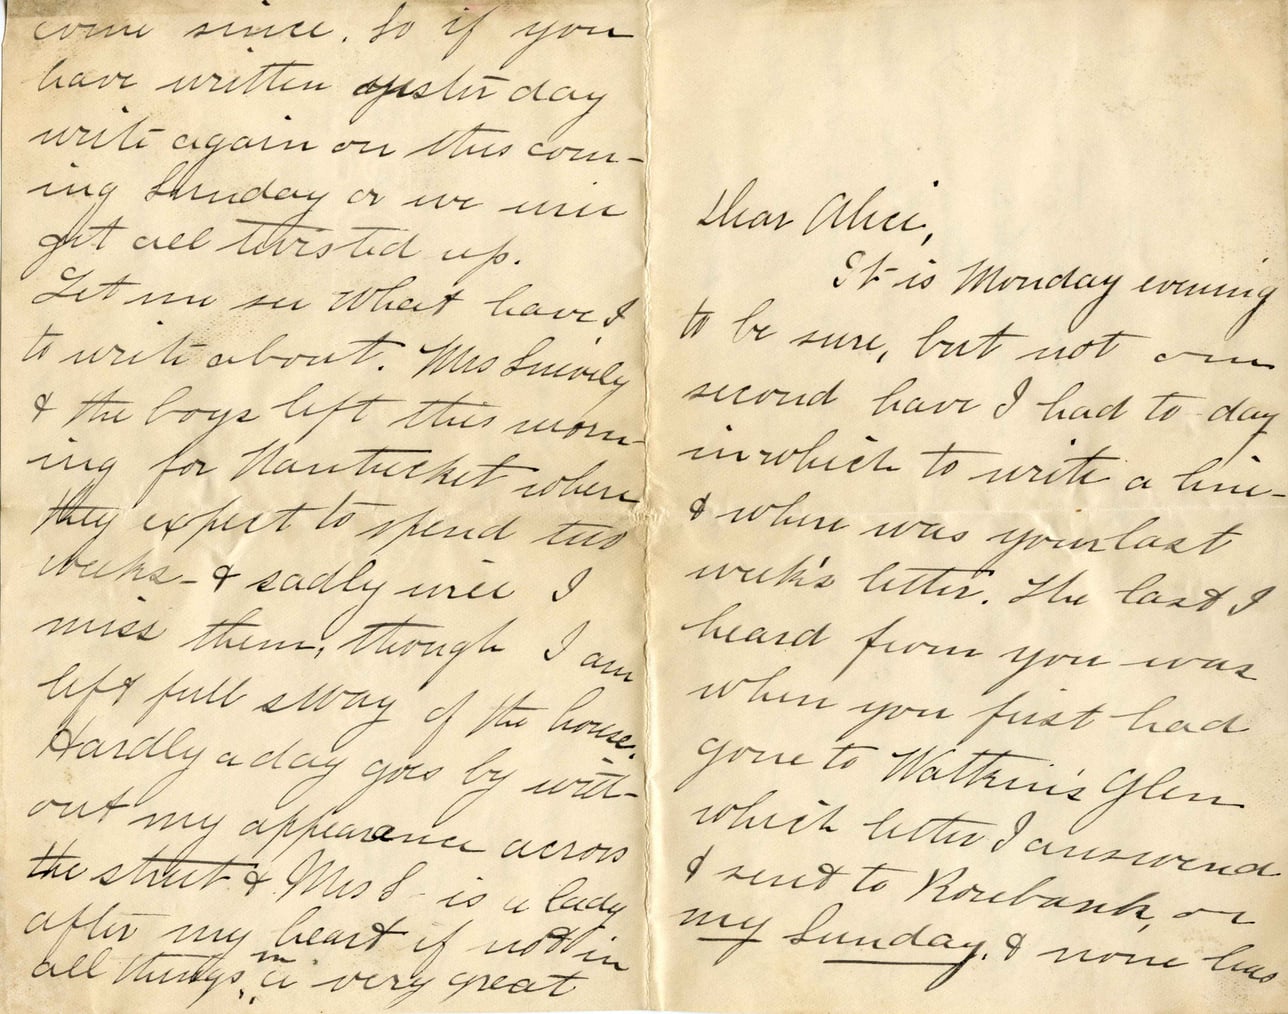 Dear Alice,
It is Monday evening
to be sure, but not one
second have I had to-day
in which to write a line-
& where was your last
week's letter. The last I
heard from you was
when you first had
gone to Watkin's Glen
which letter I answered
& sent to Rosebank, on
my Sunday. & none has
come since. So if you
have written yesterday
write again on this com-
ing Sunday or we will
get all twisted up.
Let me see what have I
to write about. Mrs Snively
& the boys left this morn-
ing for Nantucket where
they expect to spend two
weeks - & sadly will I
miss them, though I am
left full sway of the house.
Hardly a day goes by with-
out my appearance across
the street & Mrs S- is a lady
after my heart if not in
all things, in a very great